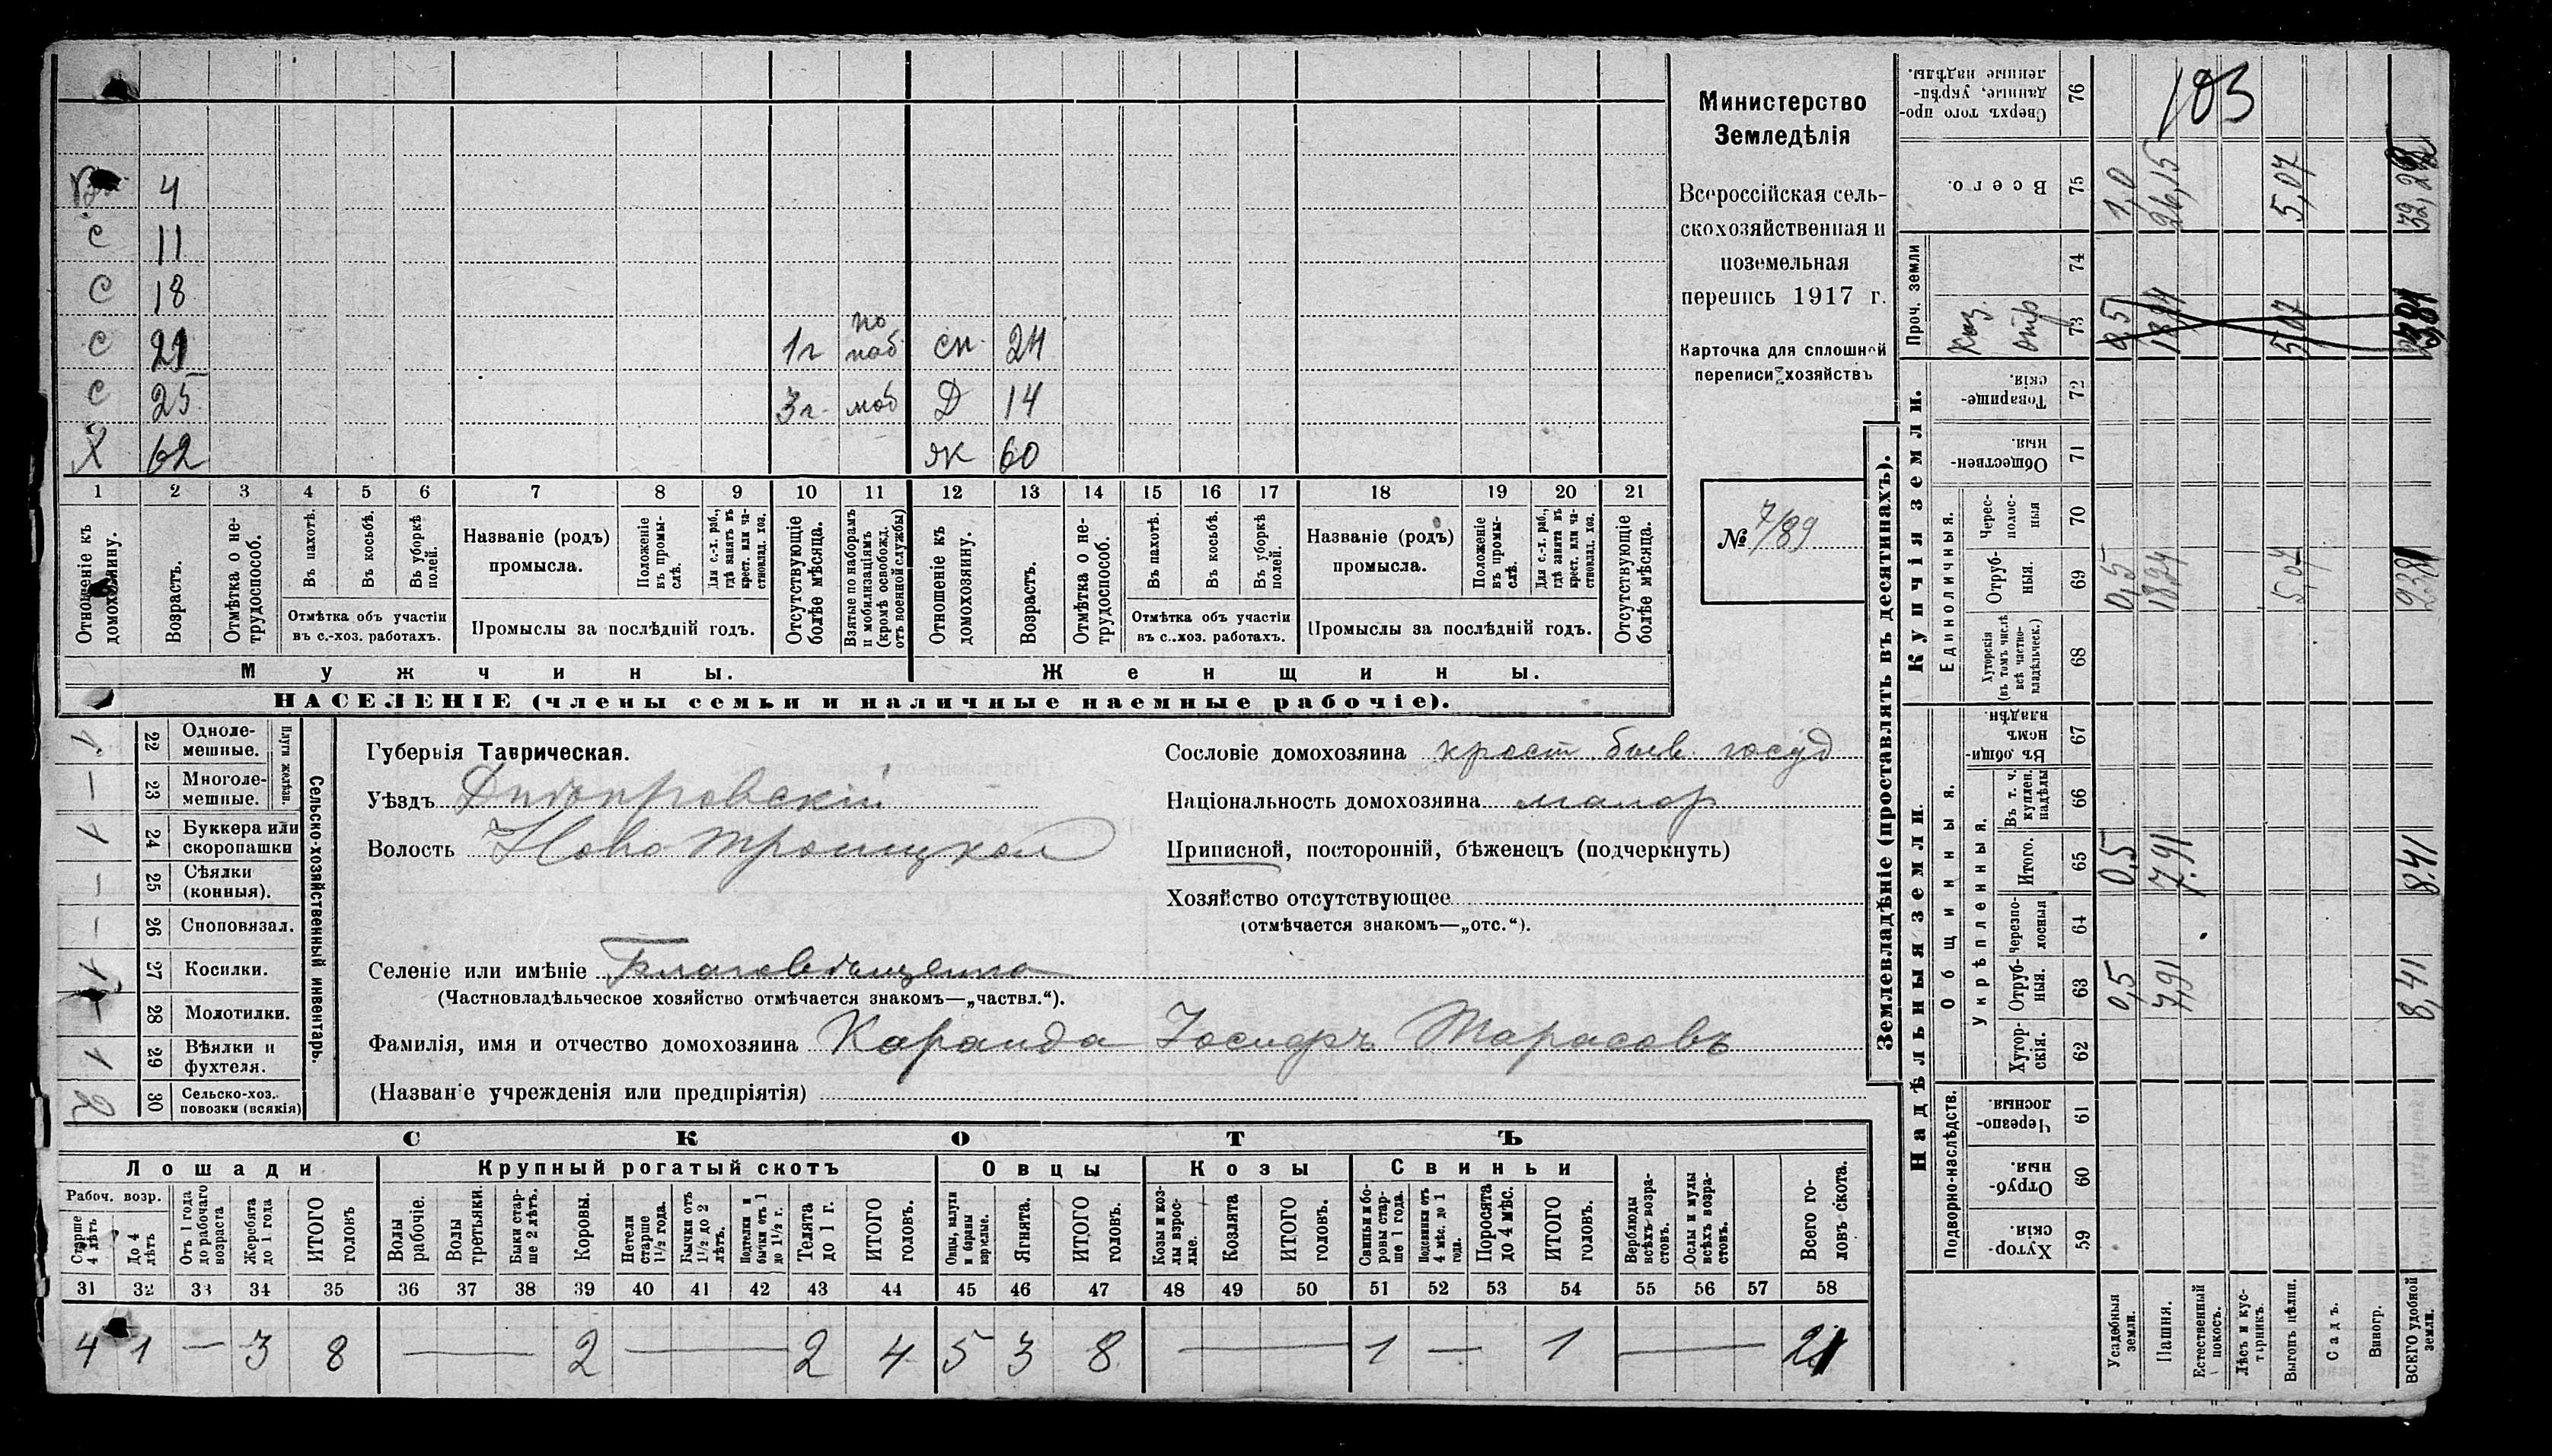 4
с 11
с 18
с 21 1г по моб сн. 24
с 25 3г. моб Д 14
Х 62 як 60
1 2 3 4 5 6 7 8 9 10 11 12 13 14 15 16 17 18 19 20 21
Отношеніе къ домохозяину.
Возрастъ.
Отмѣтка о не-трудоспособ.
Въ пахотѣ.
Въ косьбѣ.
Въ уборкѣ полей.
Отмѣтка объ участіи
въ с.-хоз. работахъ.
Названіе (родъ)
промысла.
Положеніе въ промы-слѣ.
Для с.-х. раб., гдѣ занятъ въ крест. или ча-стновлад. хоз.
Промыслы за послѣдній годъ.
Отсутствующіе болѣе мѣсяца.
Взятые по наборамъ и мобилизаціямъ (кромѣ освобожд. отъ военной службы)
Отношеніе къ домохозяину.
Возрастъ.
Отмѣтка о не-трудоспособ.
Въ пахотѣ.
Въ косьбѣ.
Въ уборкѣ полей.
Отмѣтка объ участіи
въ с.-хоз. работахъ.
Названіе (родъ)
промысла.
Положеніе въ промы-слѣ.
Для с.-х. раб., гдѣ занята въ крест. или ча-стновлад. хоз.
Промыслы за послѣдній годъ.
Отсутствующіе болѣе мѣсяца.
Мужчины.
Женщины.
НАСЕЛЕНІЕ (члены семьи и наличные наемные рабочіе).
Министерство
Земледѣлія
Всероссійская сель-
скохозяйственная и
поземельная
перепись 1917 г.
Карточка для сплошной
переписи хозяйствъ
№ 7/89
1 22 Одноле-мешные.
— 23 Многоле-мешные.
Плуги желѣзн.
1 24 Буккера или скоропашки
— 25 Сѣялки (конныя).
— 26 Сноповязал.
1 27 Косилки.
— 28 Молотилки.
1 29 Вѣялки и фухтеля.
2 30 Сельско-хоз. повозки (всякія)
Сельско-хозяйственный инвентарь.
Губернія Таврическая.
Уѣздъ Днѣпровскій
Волость Ново Троицкая
Селеніе или имѣніе Благовѣщенка
(Частновладѣльческое хозяйство отмѣчается знакомъ—„частвл.“).
Фамилія, имя и отчество домохозяина Каранда Іосифъ Тарасовъ
(Названіе учрежденія или предпріятія)
Сословіе домохозяина крест. быв. госуд
Національность домохозяина малор
Приписной, посторонній, бѣженецъ (подчеркнуть)
Хозяйство отсутствующее
(отмѣчается знакомъ—„отс.“).
СКОТЪ
Лошади
Крупный рогатый скотъ
Овцы
Козы
Свиньи
Рабоч. возр.
Старше 4 лѣтъ
До 4 лѣтъ
Отъ 1 года до рабочаго возраста
Жеребята до 1 года
ИТОГО головъ
Волы рабочіе.
Волы третьяки.
Быки стар-ше 2 лѣтъ.
Коровы.
Нетели старше 1½ года.
Бычки отъ 1½ до 2 лѣтъ.
Подтелки и бычки отъ 1 до 1½ г.
Телята до 1 г.
ИТОГО головъ.
Овцы, валухи и бараны взрослые.
Ягнята.
ИТОГО головъ.
Козы и коз-лы взрос-лые.
Козлята
ИТОГО головъ.
Свиньи и бо-ровы стар-ше 1 года.
Подсвинки отъ 4 мѣс. до 1 года.
Поросята до 4 мѣс.
ИТОГО головъ.
Верблюды всѣхъ возра-стовъ.
Ослы и мулы всѣхъ возра-стовъ.
Всего го-ловъ скота.
31 32 33 34 35 36 37 38 39 40 41 42 43 44 45 46 47 48 49 50 51 52 53 54 55 56 57 58
4 1 — 3 8 — 2 — 2 4 5 3 8 — 1 — 1 — 21
Землевладѣніе (проставлять въ десятинахъ).
Надѣльныя земли.
Купчія земли.
Проч. земли
Подворно-наслѣдств.
Общинныя.
Укрѣпленныя.
Единоличныя.
Сверхъ того про-данные, укрѣп-ленные надѣлы. 76 103
Всего. 75 1,0 26,15 5,07 32,22
74
Каз. отр 73 0,5 18,24 5,07 23,81
Товарище-скія. 72
Обществен-ныя. 71
Черес-полос-ныя 70
Отруб-ныя. 69 0,5 18,24 5,07 23,81
Хуторскія (въ томъ числѣ всѣ частно-владѣльческ.) 68
Въ общи-нномъ владѣн. 67
Въ т. ч. куплен. надѣлы 66
Итого. 65 0,5 7,91 8,41
Черезпо-лосныя 64
Отруб-ныя. 63 0,5 7,91 8,41
Хутор-скія. 62
Черезпо-лосныя. 61
Отруб-ныя. 60
Хутор-скія. 59
Усадебныя земли.
Пашня.
Естественный покосъ.
Лѣсъ и кус-тарникъ.
Выгонъ цѣлин.
Садъ.
Виногр.
ВСЕГО удобной земли.